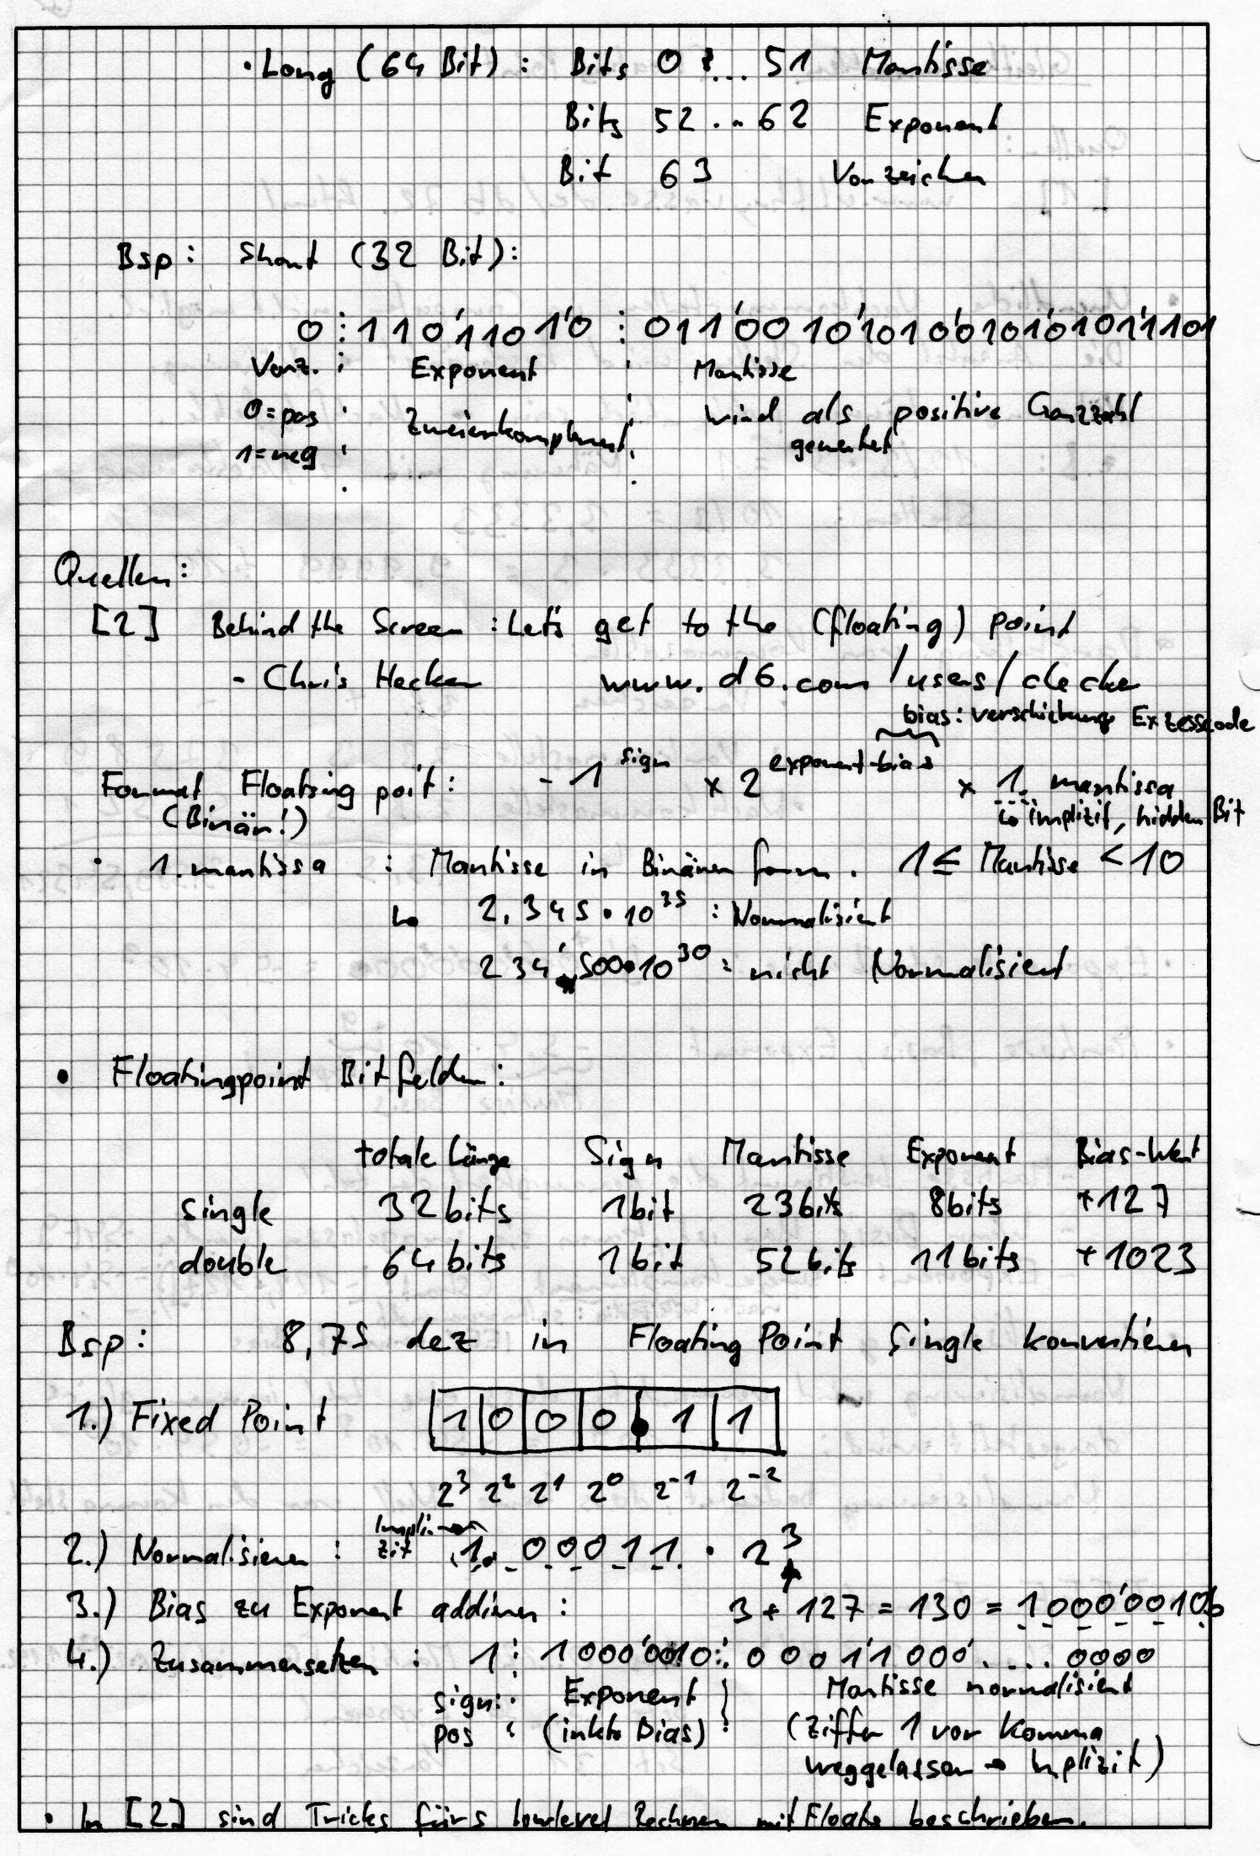 • Long (64 Bit) : Bits 0 ... 51 Mantisse
Bits 52 ... 62 Exponent
Bit 63 Vorzeichen
Bsp : Short (32 Bit) :
0 : 110'110 1'0 : 011'0010'1010'0101'0101'1101
Vorz. : Exponent : Mantisse
0=pos : Zweierkomplement : wird als positive Ganzzahl
1=neg : gewertet
Quellen :
[2] Behind the Screen : Let's get to the (floating) point
- Chris Hecker www.d6.com/users/checker
bias : verschiebung Exzesscode
Format Floating poit : -1^sign × 2^exponent-bias × 1. mantissa
(Binär!) ↳ implizit, hidden Bit
• 1.mantissa : Mantisse in Binärer form. 1 ≤ Mantisse < 10
↳ 2,345 • 10^35 : Normalisiert
234'500•10^30 : nicht Normalisiert
• Floatingpoint Bitfelder :
totale Länge Sign Mantisse Exponent Bias-Wert
single 32bits 1bit 23bits 8bits +127
double 64bits 1bit 52bits 11bits +1023
Bsp : 8,75 dez in Floating Point Single konvertieren
1.) Fixed Point 1 0 0 0 . 1 1
2^3 2^2 2^1 2^0 2^-1 2^-2
2.) Normalisieren : Implizit → 1. 00011 · 2^3
3.) Bias zu Exponent addieren : 3 + 127 = 130 = 1000'0010b
4.) Zusammensetzen : 1 : 1000'0010 : 00011000' .... 0000
sign : Exponent : Mantisse normalisiert
pos : (inkl. Bias) : (Ziffer 1 vor Komma
weggelassen → Implizit)
• In [2] sind Tricks fürs lowlevel Rechnen mit Floats beschrieben.